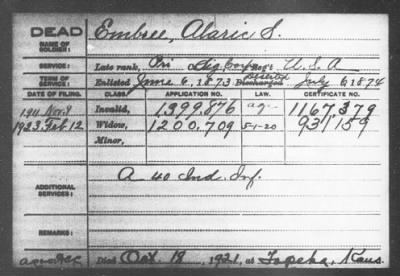 DEAD Embree, Alaric S.
NAME OF SOLDIER:
SERVICE: Late rank, Pri Sig Corps, Reg't U.S.A
TERM OF SERVICE: Enlisted June 6, 1873 Deserted Discharged July 6 1874
DATE OF FILING. CLASS. APPLICATION NO. LAW. CERTIFICATE NO.
Nov. 9 Invalid, 1399,876 1167,379
1923 Feb 12 Widow, 1200,709 5-1-20 931,159
Minor,
ADDITIONAL SERVICES: A 40 Ind. Inf.
REMARKS:
Died Oct. 18, 1921, at Topeka, Kans.